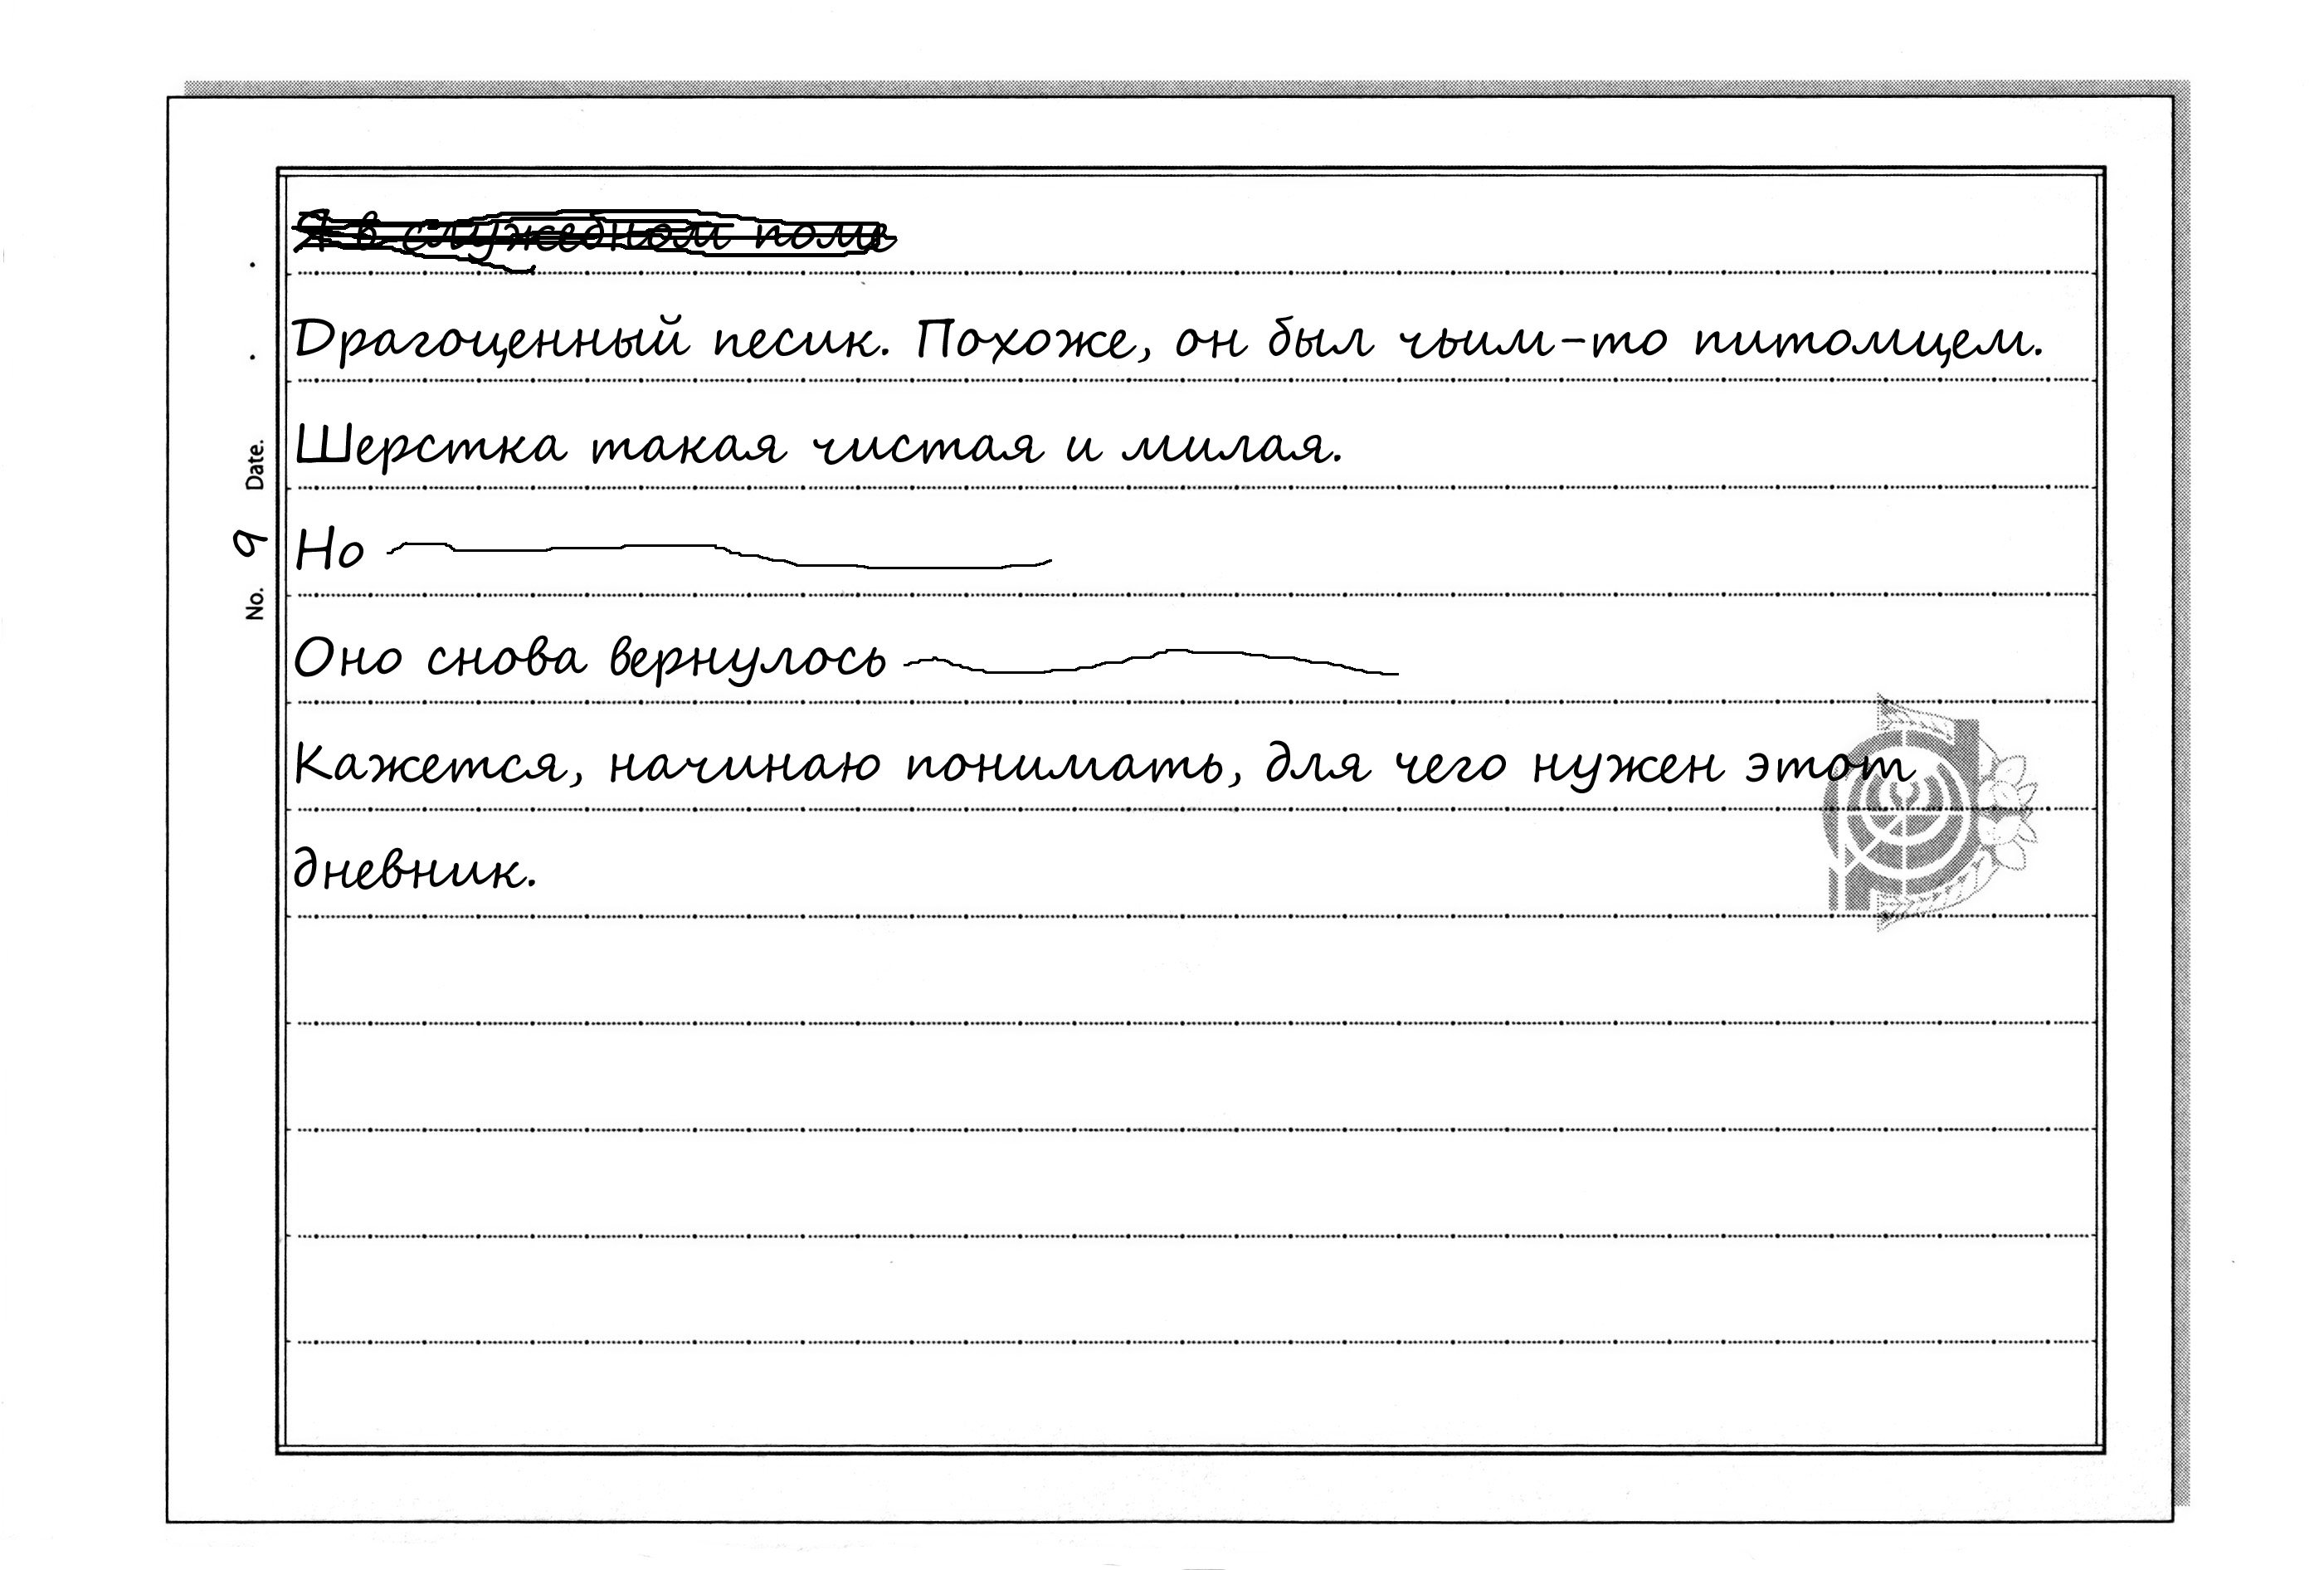 Драгоценный песик. Похоже, он был чьим-то питомцем.
Шерстка такая чистая и милая.
Но
Оно снова вернулось
Кажется, начинаю понимать, для чего нужен этот
дневник.
No. 9 Date.